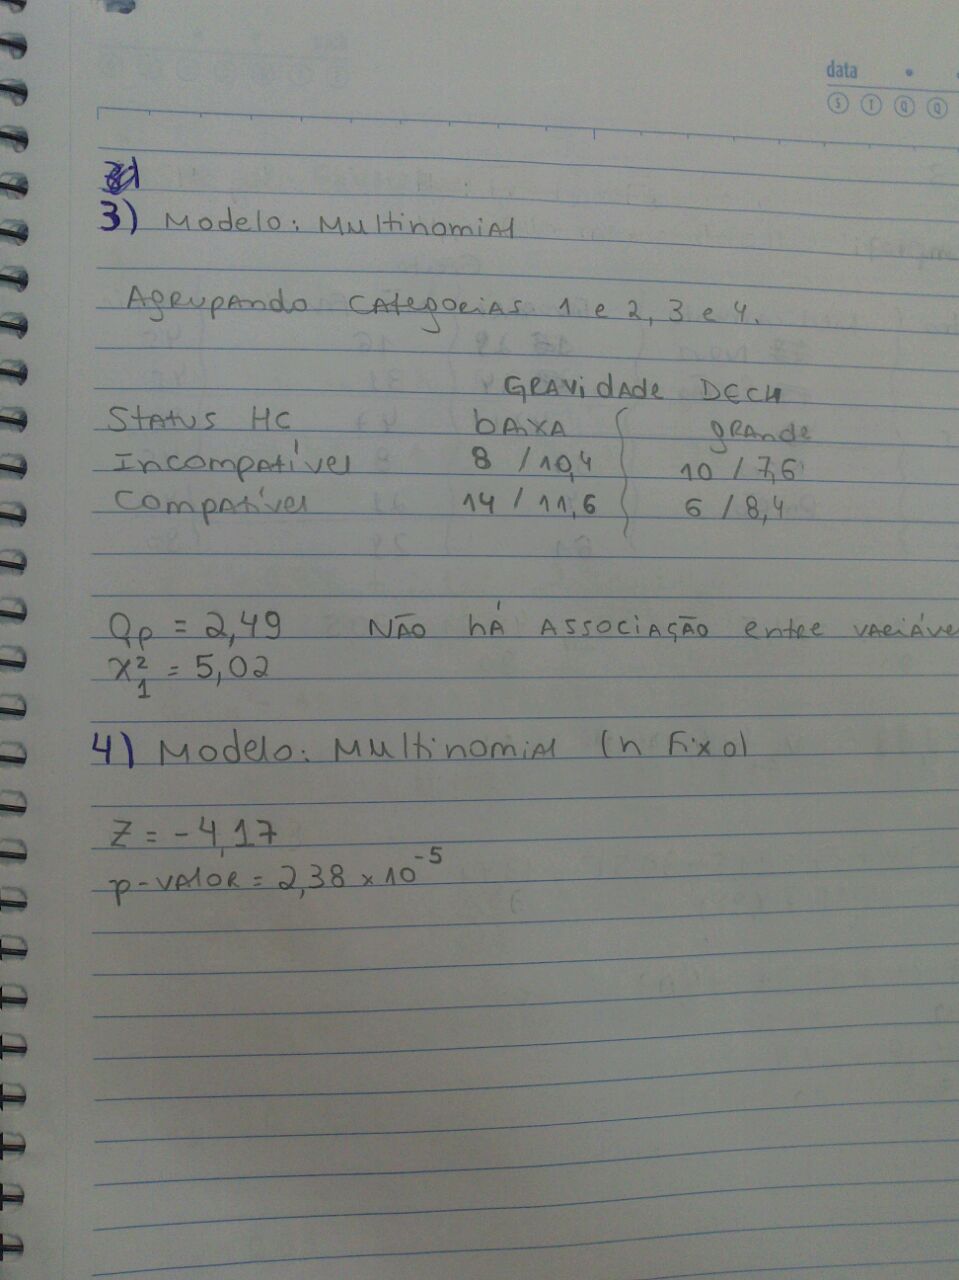 data
S T Q Q
3) Modelo: Multinomial
Agrupando categorias 1 e 2, 3 e 4.
Gravidade DECH
Status HC baixa grande
Incompatível 8 / 10,4 10 / 7,6
Compatível 14 / 11,6 6 / 8,4
Qp = 2,49 Não há associação entre variáve
X²₁ = 5,02
4) Modelo: Multinomial (n fixo)
Z = -4,17
p-valor = 2,38 × 10⁻⁵